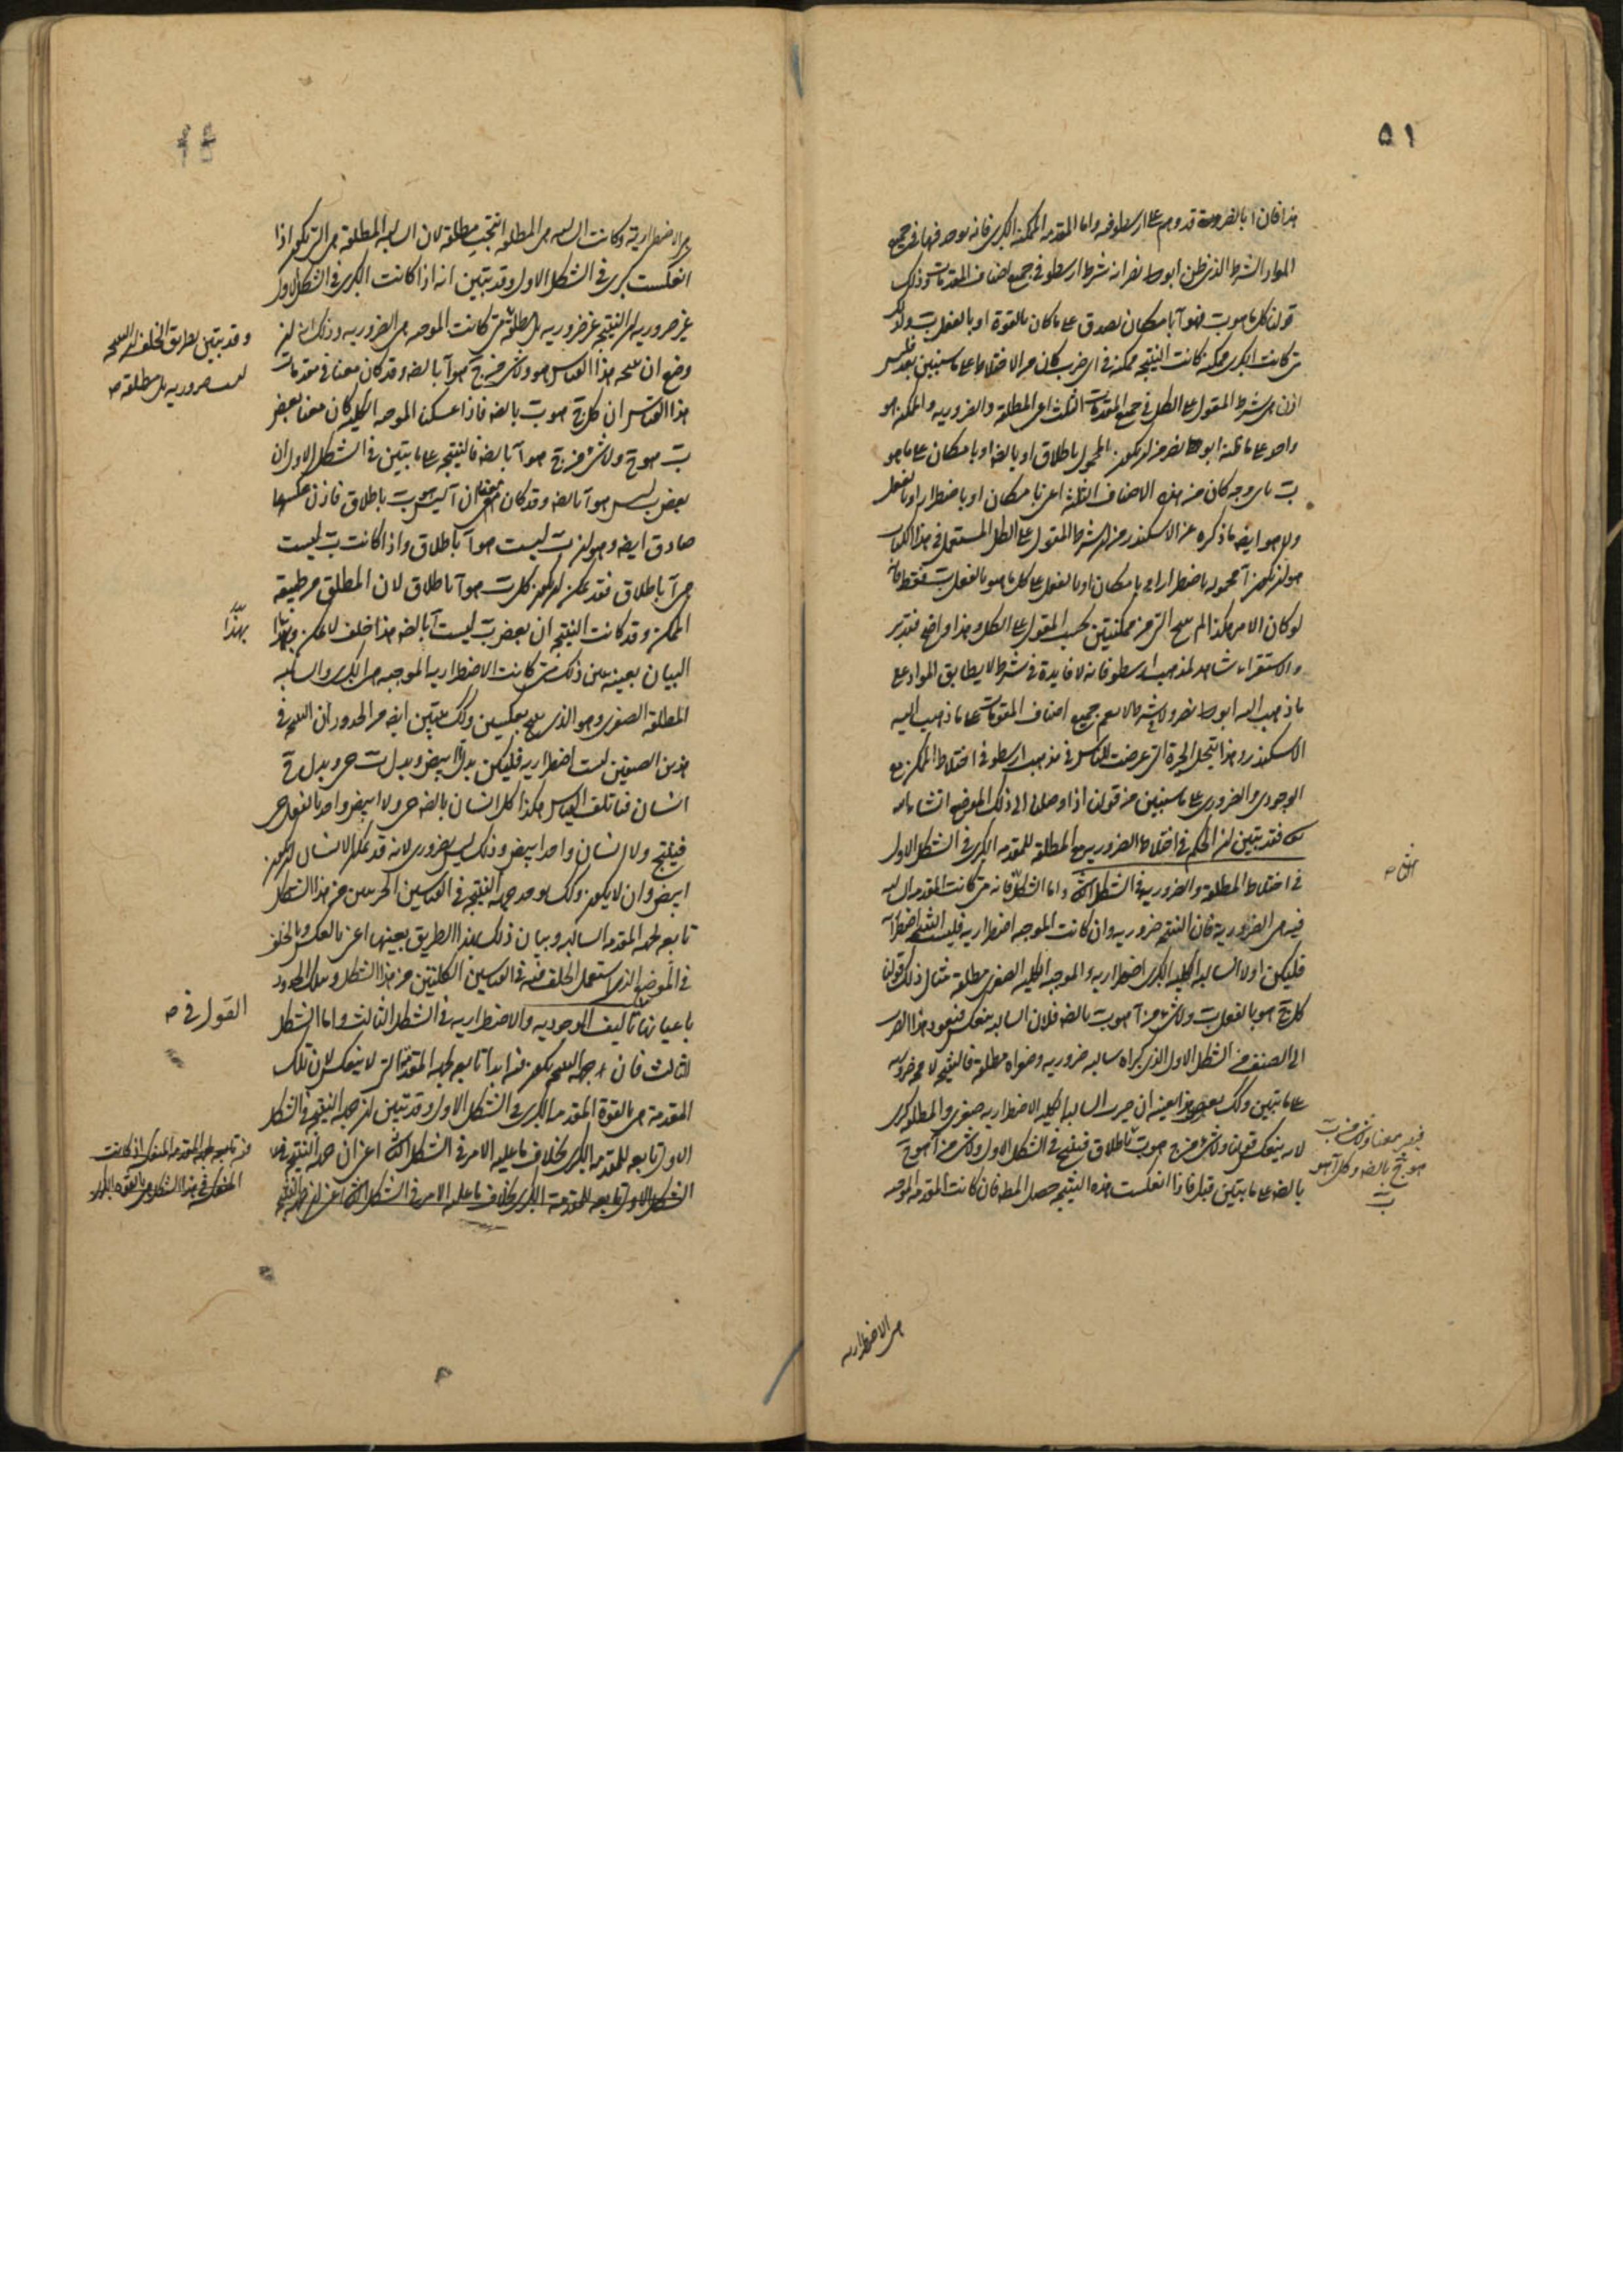 ٥١
هذا فان ابا نصر قد وهم على ارسطو فيه واما المقدمه الممكنه الكبرى فانه يوجد فيها في جميع
المواد الشرط الذى ظن ابو نصر انه شرط ارسطو فى جميع اصناف المقدمات وذلك
قولنا كل ما هو ب فهو آ بامكان يصدق على ما كان بالقوة او بالفعل ب ولذلك
متى كانت الكبرى ممكنه كانت النتيجه ممكنه فى اى ضرب كان من الاختلاط على ما سنبين بعد فليس
اذن شرط المقول على الكل فى جميع المقدمات الثلث اعنى المطلقه والضروريه والممكنه هو
واحد على ما ظنه ابو نصر من ان يكون المحمول باطلاق او بالضه او بامكان على ما هو
ب باى وجه كان من هذه الاصناف الثلثه اعنى بامكان او باضطرار او بالفعل
ولا هو ايضه ما ذكره عن الاسكندر من ان شرط المقول على الكل المستعمل فى هذا الكتاب
هو ان يكون آ محموله باضطرار او بامكان او بالفعل على كل ما هو بالفعل ب فقط فانه
لو كان الامر هكذا لم ينتج التى من ممكنتين بحسب المقول على الكل وهذا واضح فتدبر
والاستقراء شاهد لمذهب ارسطو فانه لا فايدة فى شرط لا يطابق المواد على
ما ذهب اليه ابو نصر ولا شرط لا يعم جميع اصناف المقدمات على ما ذهب اليه
الاسكندر وبهذا تنحل الحيرة التى عرضت للناس فى مذهب ارسطو فى اختلاط الممكن مع
الوجودى والضرورى على ما سنبين من قولنا اذا وصلنا الى ذلك الموضع انشاء الله
فقد تبين ان الحكم فى اختلاط الضروريه مع المطلقه للمقدمه الكبرى فى الشكل الاول
فى اختلاط المطلقه والضروريه فى الشكل الثانى واما الشكل فانه متى كانت المقدمه السالبه
فيه هى الضروريه فان النتيجه ضروريه وان كانت الموجبه اضطراريه فليست النتيجه اضطراريه
فليكن اولا السالبه الكليه الكبرى اضطراريه والموجبه الكليه الصغرى مطلقه مثال ذلك قولنا
كل ج هو بالفعل ب ولا شى من آ هو ب بالضه فلان السالبه ينعكس فيعود هذا الضرب
الى الصنف من الشكل الاول الذى كبراه سالبه ضروريه وصغراه مطلقه فالنتيجه لا محه ضروريه
على ما تبين وكذلك يعرض هذا بعينه ان صيرت السالبه الكليه الاضطراريه صغرى والمطلقه كبرى
لانه ينعكس قولنا ولا شى من ج هو ب باطلاق فينتج فى الشكل الاول ولا شى من آ هو ج
بالضه على ما تبين قبل فاذا انعكست هذه النتيجه حصل المط فان كانت المقدمه الموجبه
فيصير معنا ولا شى من ب
هو ج بالضه وكل آ هو
ب
هى الاضطراريه
هى الاضطراريه وكانت السالبه هى المطلقه انتجت مطلقه لان السالبه المطلقه هى التى تكون اذا
انعكست كبرى فى الشكل الاول وقد تبين انه اذا كانت الكبرى فى الشكل الاول
غير ضروريه ان النتيجه غير ضروريه بل مطلقه متى كانت الموجبه هى الضروريه وذلك انه ان
وضع ان نتيجه هذا القياس هو ولا شى من ج هو آ بالضه وقد كان معنا فى مقدمات
هذا القياس ان كل ج هو ب بالضه فاذا عكسنا الموجبه الكليه كان معنا بعض
ب هو ج ولا شى من ج هو آ بالضه فالنتيجه على ما تبين فى الشكل الاول ان
بعض ب ليس هو آ بالضه وقد كان معنا ان آ ليس هو ب باطلاق فاذن عكسها
صادق ايضه وهو ان ب ليست هو آ باطلاق واذا كانت ب ليست
هى آ باطلاق فقد يمكن ان يكون كل ب هو آ باطلاق لان المطلق من طبيعة
الممكن وقد كانت النتيجه ان بعض ب ليست آ بالضه هذا خلف لا يمكن وبهذا
البيان بعينه يتبين ذلك متى كانت الاضطراريه الموجبه هى الكبرى والسالبه
المطلقه الصغرى وهو الذى ينتج بعكسين وكذلك يتبين ايضه من الحدود ان النتيجه فى
هذين الصنفين ليست اضطراريه فليكن بدل آ ابيض وبدل ب حى وبدل ج
انسان فياتلف القياس هكذا كل انسان بالضه حى ولا ابيض واحد بالفعل حى
فينتج ولا انسان واحد ابيض وذلك ليس بضرورى لانه قد يمكن الانسان ان يكون
ابيض وان لا يكون وكذلك يوجد جهة النتيجه فى القياسين الجزئيين من هذا الشكل
تابعه لجهة المقدمه السالبه وبيان ذلك بهذا الطريق بعينها اعنى بالعكس وبالخلف
فى الموضع الذى استعمل الخلف فيه فى القياسين الكليتين من هذا الشكل وبتلك الحدود
باعيانها تاليف الوجوديه والاضطراريه فى الشكل الثالث واما الشكل
الثالث فان جهة النتيجه يكون فيه ابدا تابعه لجهة المقدمة التى لا ينعكس لان تلك
المقدمة هى بالقوة المقدمه الكبرى فى الشكل الاول وقد تبين ان جهة النتيجه فى الشكل
الاول تابعه للمقدمه الكبرى بخلاف ما عليه الامر فى الشكل الثانى اعنى ان جهة النتيجه فيه
الشكل الاول تابعه للمقدمة الكبرى بخلاف ما عليه الامر فى الشكل الثانى اعنى ان جهة النتيجه
وقد يتبين بطريق الخلف ان النتيجه
ليست ضروريه بل مطلقه صه
بهذا
القول فى صه
فيه تابعه لجهة المقدمه المنعكسه اذ كانت
المنعكسه فى هذا الشكل هى بالقوه الكبرى